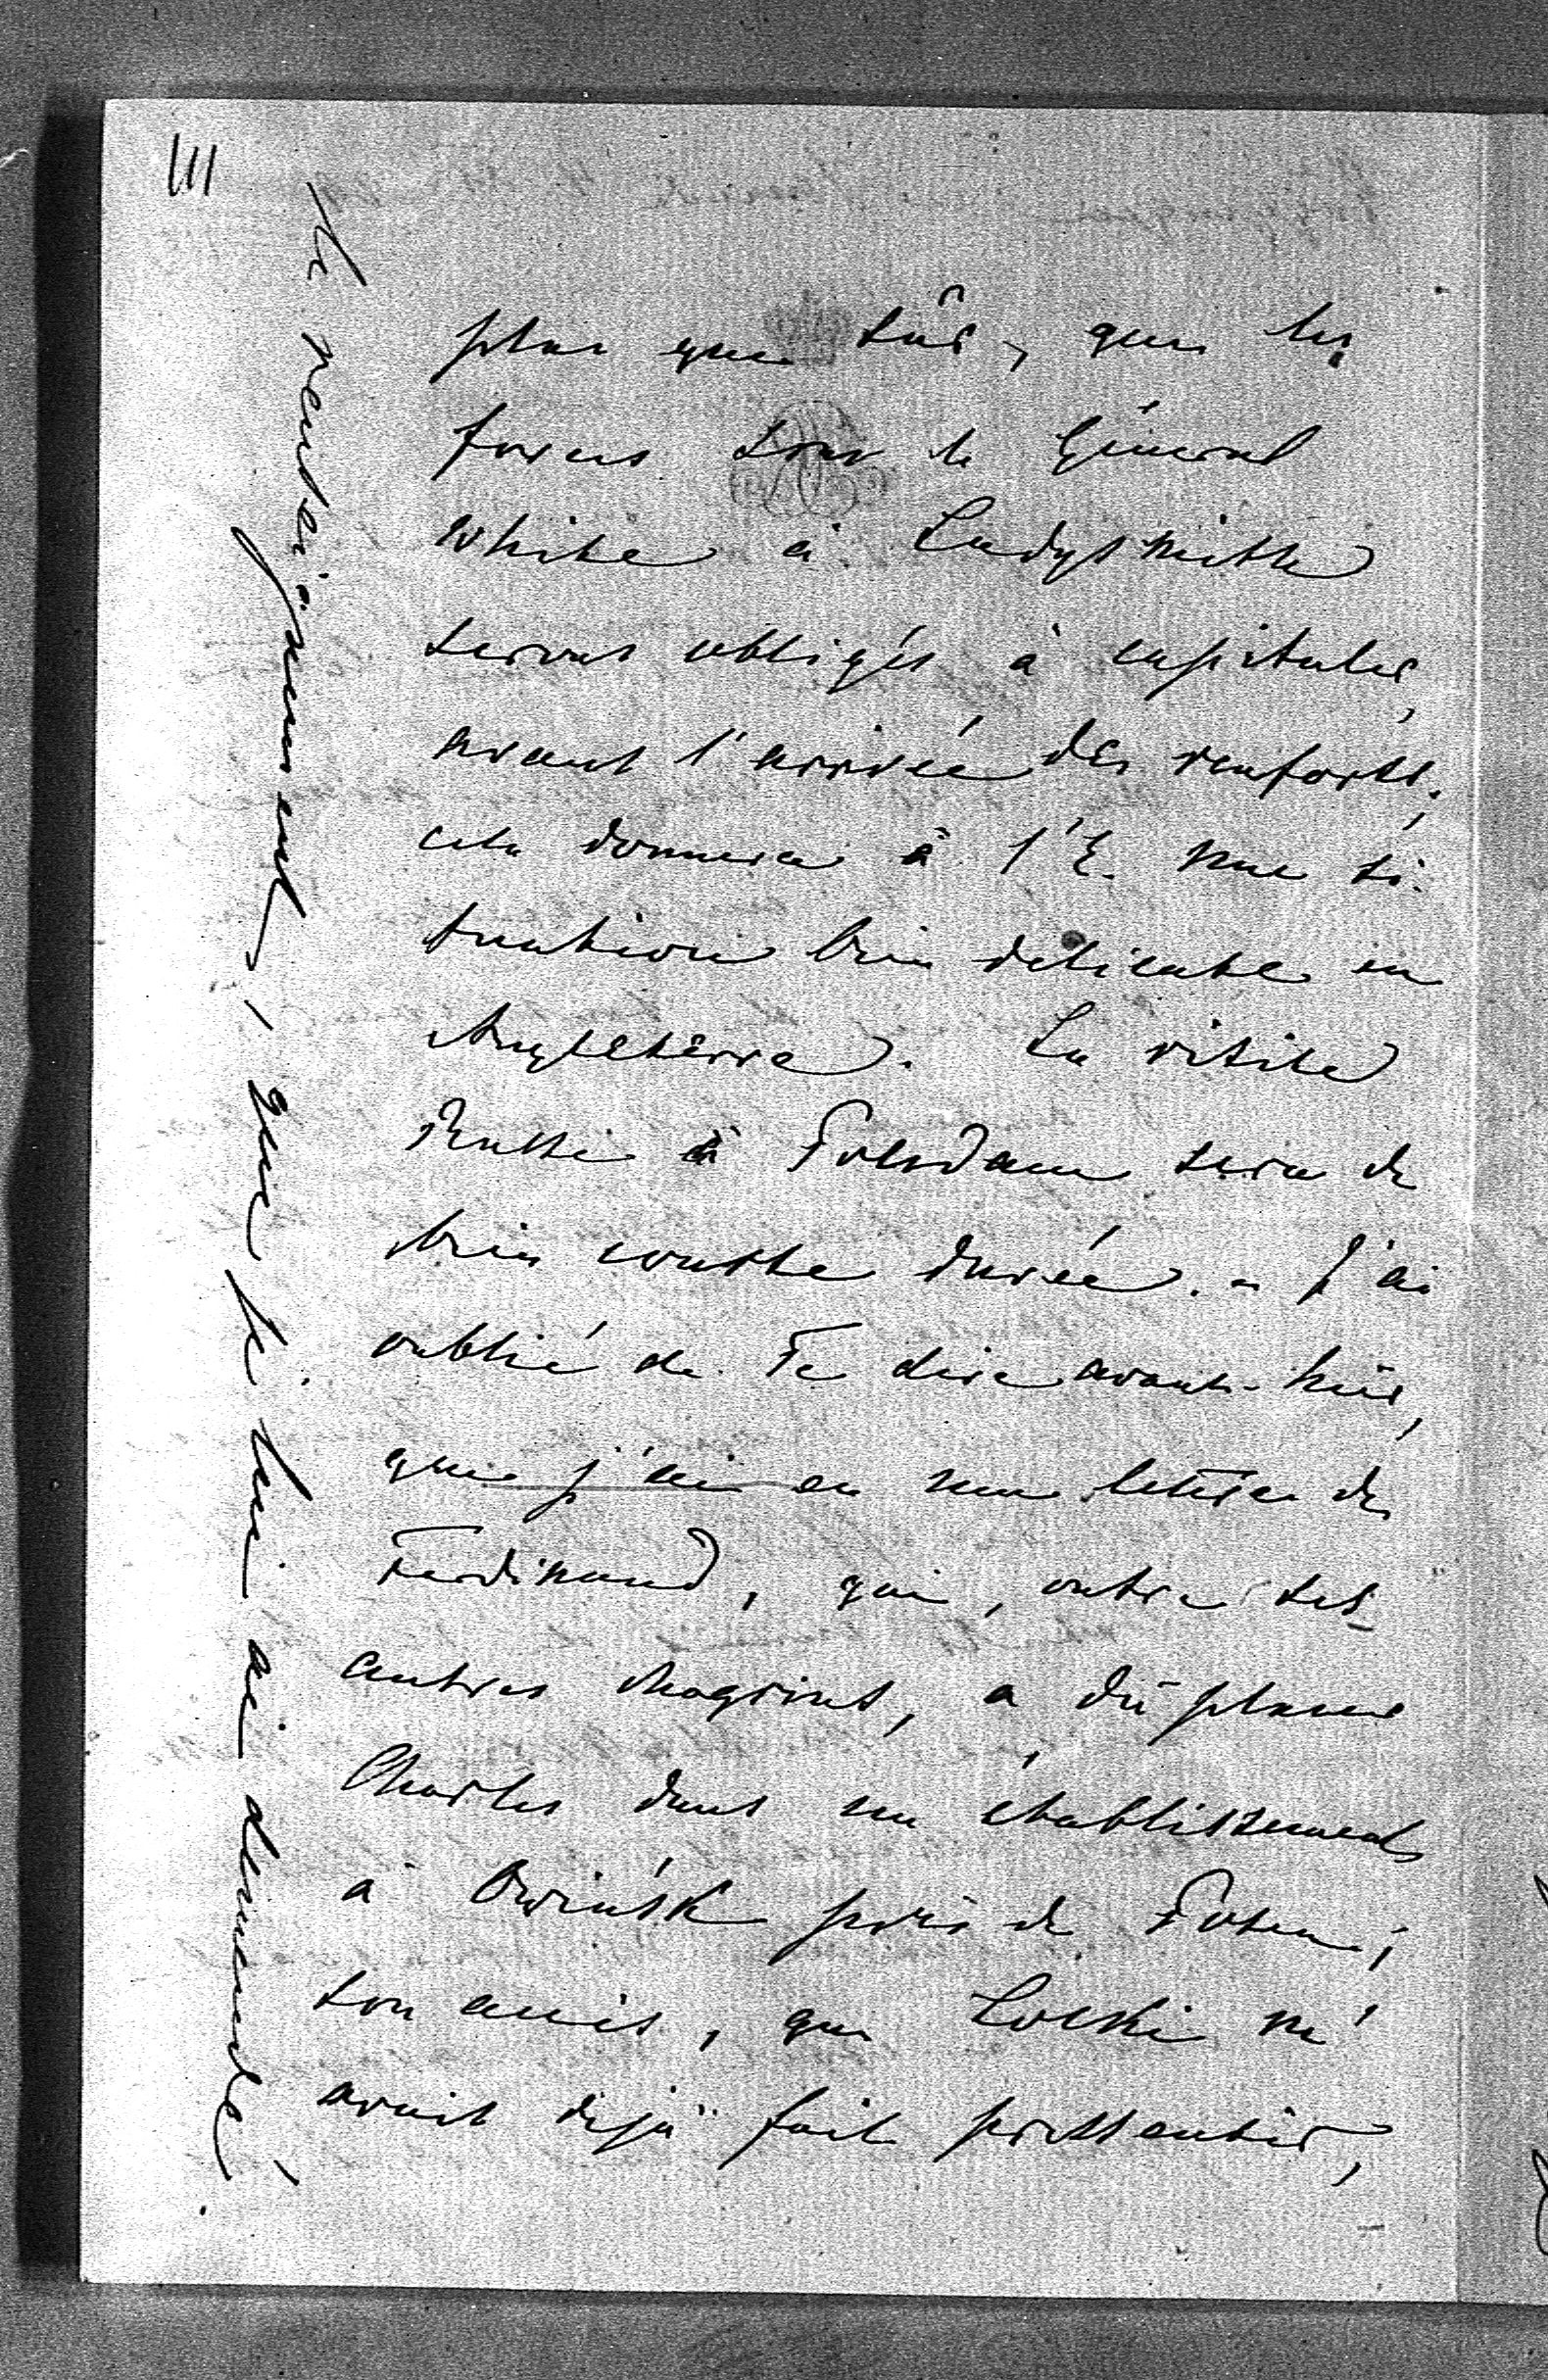 III
plus que sûr, que les
forces sous le Général
White à Ladysmith
seront obligés à capituler,
avant l'arrivée des renforts;
cela donnera à l'E. une si-
tuation bien delicate en
Angleterre. La visite
Russe à Potsdam sera de
bien courte durée. - J'ai
oublié de Te dire avant-hier,
que j'ai eu une lettre de
Ferdinand, qui, outre ses
autres chagrins, a dû placer
Charles dans un établissement
à Owińsk près de Posen;
son avis, que m'
avait déjà fait pressentir,
le renseignement, que je lui ai demandé.